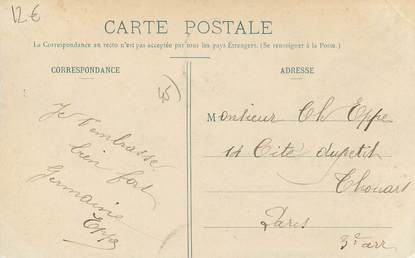 12 €
CARTE POSTALE
La Correspondance au recto n'est pas acceptée par tous les pays Étrangers. (Se renseigner à la Poste.)
CORRESPONDANCE
ADRESSE
45
Je t'embrasse
bien fort
Germaine
Eppe
Monsieur Ch Eppe
14 Cité dupetit
Thouars
Paris
3e arr